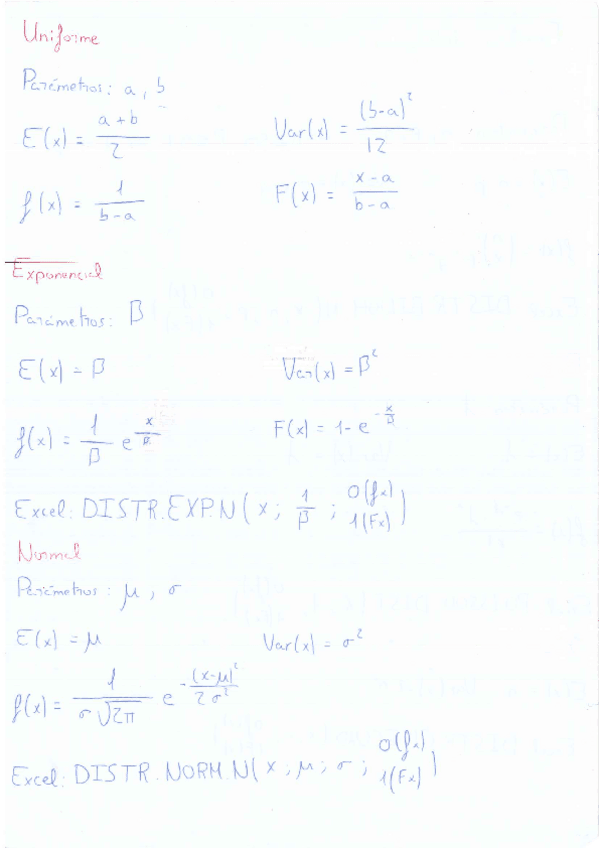 Uniforme
Parámetros: a, b
E(x) = (a + b)/2    Var(x) = (b-a)²/12
f(x) = 1/(b-a)    F(x) = (x-a)/(b-a)
Exponencial
Parámetros: β
E(x) = β    Var(x) = β²
f(x) = 1/β e^(x/β)    F(x) = 1- e^(-x/β)
Excel: DISTR.EXP.N(x; 1/β; 0(fx) 1(Fx))
Normal
Parámetros: μ, σ
E(x) = μ    Var(x) = σ²
f(x) = 1/(σ√2π) e^(-(x-μ)²/2σ²)
Excel: DISTR.NORM.N(x; μ; σ; 0(fx) 1(Fx))